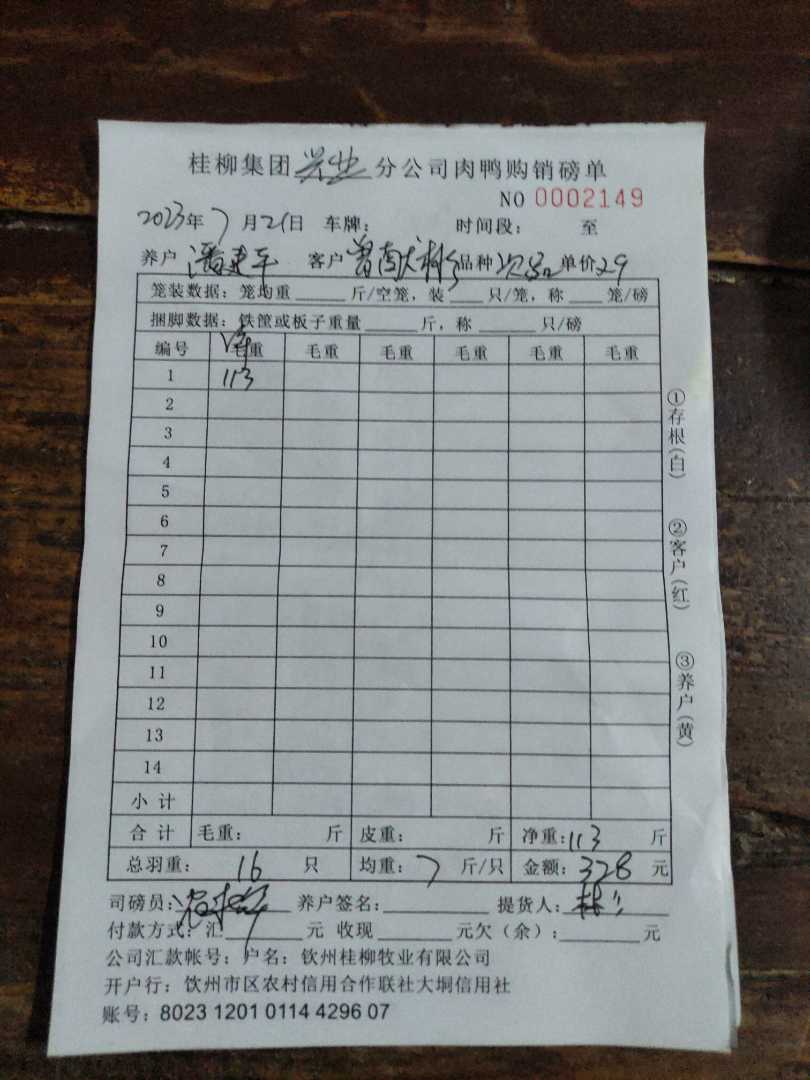 桂柳集团兴业分公司肉鸭购销磅单
NO 0002149
2023年7月21日 车牌: 时间段: 至
养户 潘建平 客户 曾献 品种 次品 单价 29
笼装数据: 笼均重 斤/空笼, 装 只/笼, 称 笼/磅
捆脚数据: 铁筐或板子重量 斤, 称 只/磅
编号 毛重 毛重 毛重 毛重 毛重 毛重
净
1 113
2
3
4
5
6
7
8
9
10
11
12
13
14
小计
合计 毛重: 斤 皮重: 斤 净重: 113 斤
总羽重: 16 只 均重: 7 斤/只 金额: 328 元
司磅员: 养户签名: 提货人: 林
付款方式: 汇 元 收现 元欠(余): 元
公司汇款帐号: 户名: 钦州桂柳牧业有限公司
开户行: 钦州市区农村信用合作联社大垌信用社
账号: 8023 1201 0114 4296 07
①存根(白)
②客户(红)
③养户(黄)